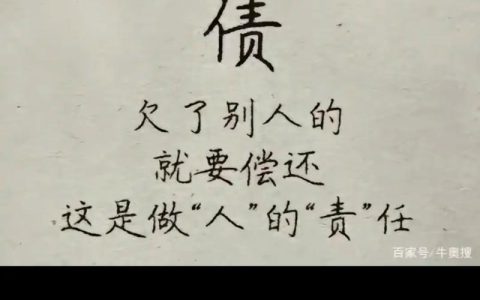 债
欠了别人的
就要偿还
这是做“人”的“责”任
百家号/牛奥搜